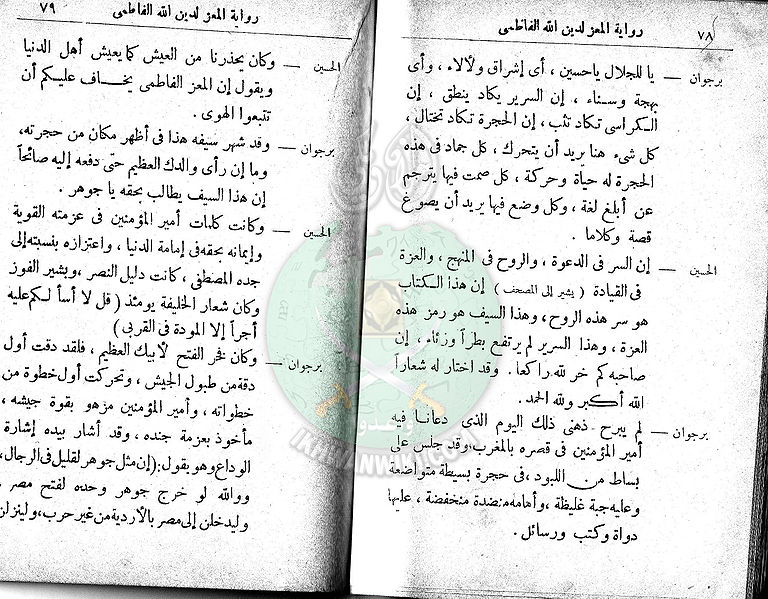 رواية المعز لدين الله الفاطمى
٧٨
برجوان — يا للجلال ياحسين ، أى إشراق ولألاء ، وأى
بهجة وسناء ، إن السرير يكاد ينطق ، إن
الكراسى تكاد تثب ، إن الحجرة تكاد تختال ،
كل شىء هنا يريد أن يتحرك ، كل جماد فى هذه
الحجرة له حياة وحركة ، كل صمت فيها يترجم
عن أبلغ لغة ، وكل وضع فيها يريد أن يصوغ
قصة وكلاما .
الحسين — إن السر فى الدعوة ، والروح فى المنهج ، والعزة
فى القيادة ( يشير إلى المصحف ) إن هذا الكتاب
هو سر هذه الروح، وهذا السيف هو رمز هذه
العزة ، وهذا السرير لم يرتفع بطراً ورئاء ، إن
صاحبه كم خر لله راكعا . وقد اختار له شعاراً
الله أكبر ولله الحمد .
برجوان — لم يبرح ذهنى ذلك اليوم الذى دعانا فيه
أمير المؤمنين فى قصره بالمغرب، وقد جلس على
بساط من اللبود ، فى حجرة بسيطة متواضعة
وعليه جبة غليظة ، وأمامه منضدة منخفضة ، عليها
دواة وكتب ورسائل .
رواية المعز لدين الله الفاطمى
٧٩
الحسين — وكان يحذرنا من العيش كما يعيش أهل الدنيا
ويقول إن المعز الفاطمى يخاف عليكم أن
تتبعوا الهوى .
برجوان — وقد شهر سيفه هذا فى أظهر مكان من حجرته،
وما إن رأى والدك العظيم حتى دفعه إليه صائحاً
إن هذا السيف يطالب بحقه يا جوهر .
الحسين — وكانت كلمات أمير المؤمنين فى عزمته القوية
وإيمانه بحقه فى إمامة الدنيا ، واعتزازه بنسبته إلى
جده المصطفى ، كانت دليل النصر ، وبشير الفوز
وكان شعار الخليفة يومئذ ( قل لا أسألكم عليه
أجراً إلا المودة فى القربى )
برجوان — وكان فخر الفتح لأبيك العظيم ، فلقد دقت أول
دقة من طبول الجيش ، وتحركت أول خطوة من
خطواته ، وأمير المؤمنين مزهو بقوة جيشه ،
مأخوذ بعزمة جنده ، وقد أشار بيده إشارة
الوداع وهو يقول: (إن مثل جوهر لقليل فى الرجال،
ووالله لو خرج جوهر وحده لفتح مصر
وليدخلن إلى مصر بالأردية من غير حرب، ولينزلن
وأعدوا
IKHWANWIKI.COM